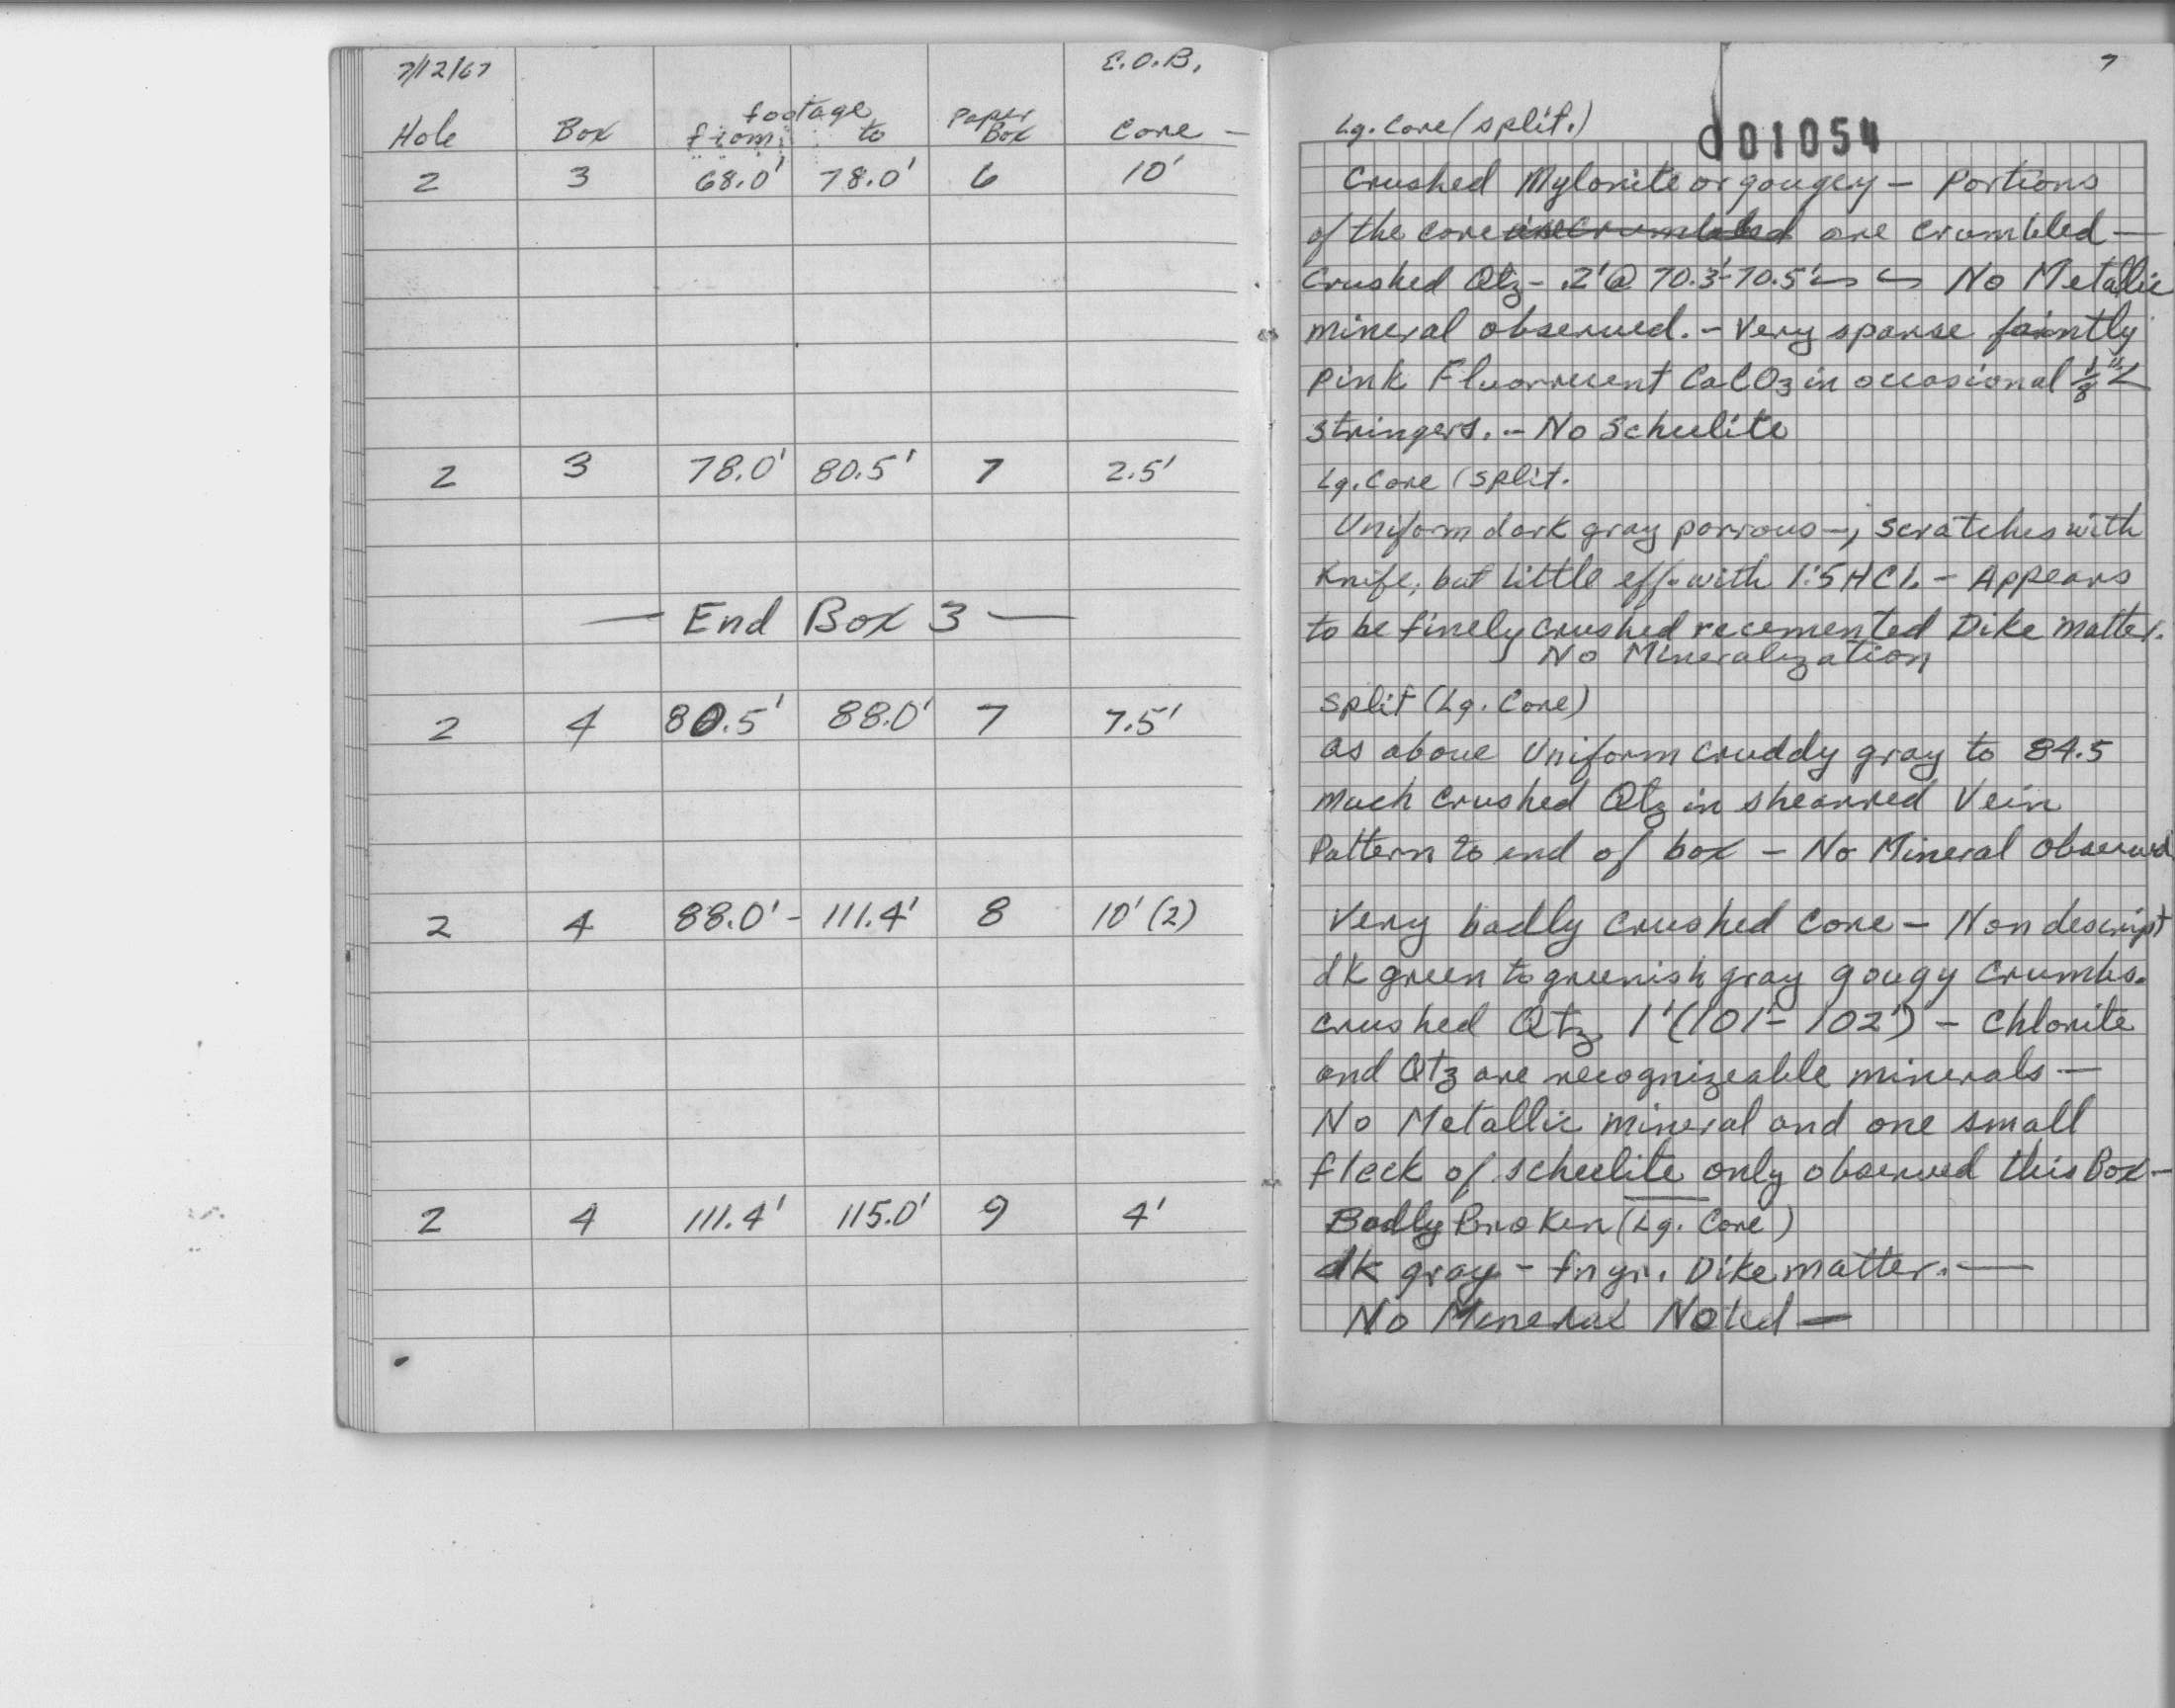 7/12/67 E.O.B.
footage
Hole Box from to Paper Box Core —
2 3 68.0' 78.0' 6 10'
2 3 78.0' 80.5' 7 2.5'
— End Box 3 —
2 4 80.5' 88.0' 7 7.5'
2 4 88.0' - 111.4' 8 10' (2)
2 4 111.4' 115.0' 9 4'
7
Lg. Core (split.)
d01054
Crushed Mylonite or gougey — Portions
of the core are crumbled —
Crushed Qtz - .2' @ 70.3'-70.5' No Metallic
mineral observed. - Very sparse faintly
pink Fluorescent CaCO3 in occasional 1/8" <
stringers. - No Scheelite
Lg. Core (split.
Uniform dark gray porrous —, scratches with
Knife, but little eff. with 1:5 HCl. - Appears
to be finely crushed recemented Dike matter.
No Mineralization
Split (Lg. Core)
as above Uniform cruddy gray to 84.5
much crushed Qtz in shearred Vein
Pattern to end of box — No Mineral Observed
Very badly crushed Core — Nondescript
dk green to greenish gray gougy crumbs.
crushed Qtz 1' (101'- 102') - Chlorite
and Qtz are recognizeable minerals —
No Metallic mineral and one small
fleck of scheelite only observed this Box —
Badly Broken (Lg. Core)
dk gray - fngr. Dike matter. —
No Mineral Noted —